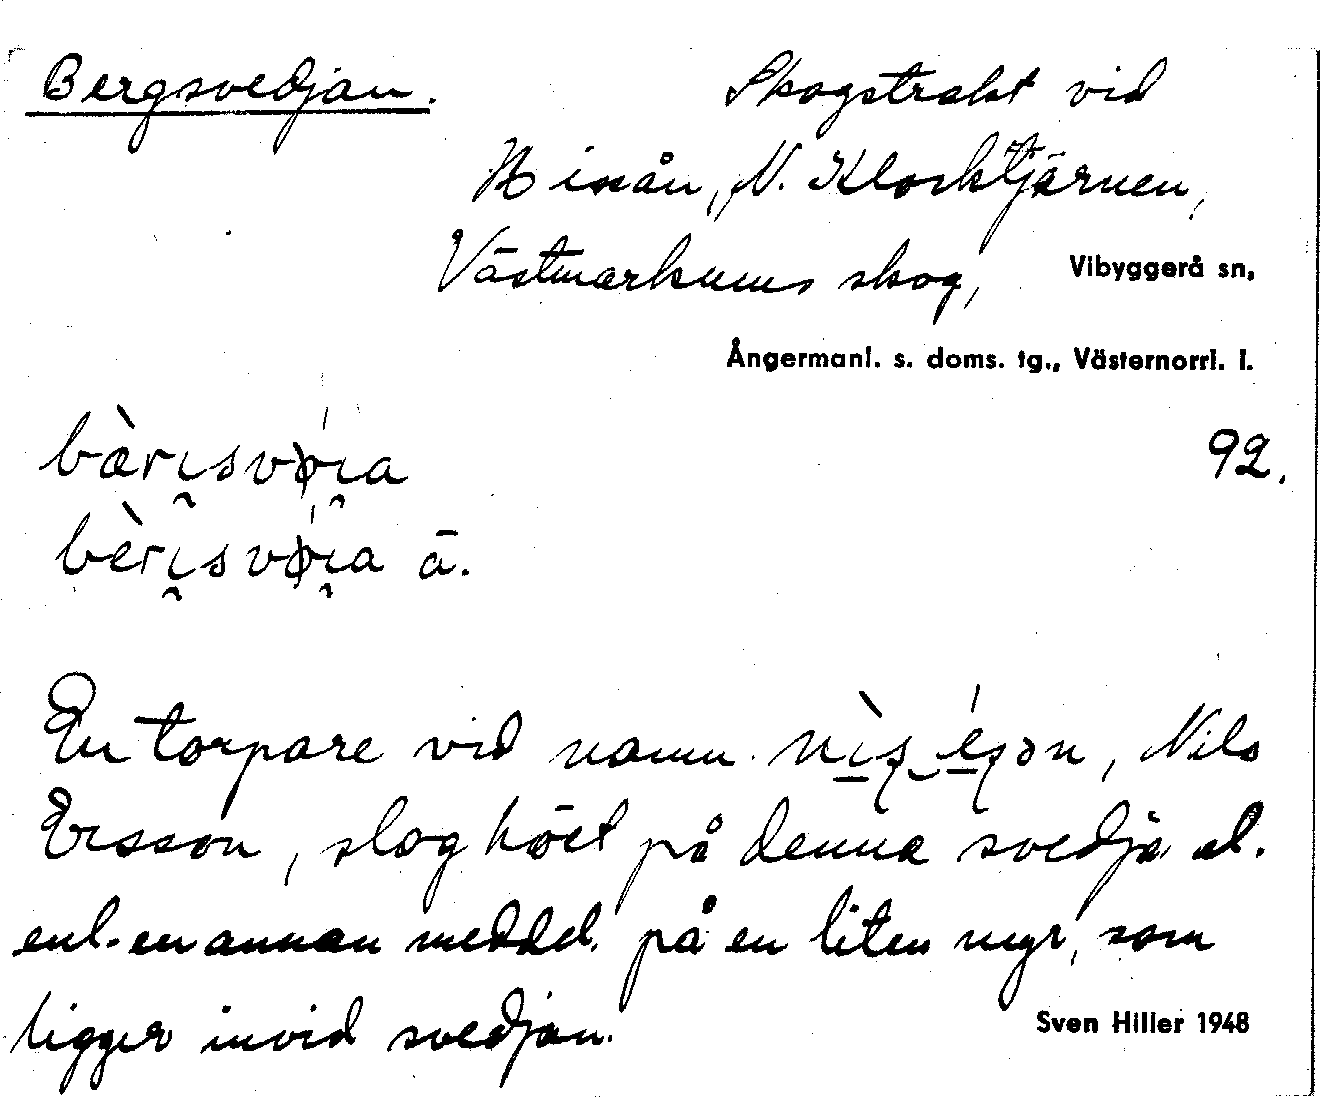 Bergsvedjan. Skogstrakt vid
Hinån, N. Klocktjärnen,
Västmarkums skog, Vibyggerå sn,
Ångermanl. s. doms. tg., Västernorrl. l.
92.
bæ̀rı̯svøı̯a
bèrı̯svøı̯a ä.
En torpare vid namn Nils
Ersson, slog höet på denna svedja el.
enl. en annan meddel. på en liten myr, som
ligger invid svedjan.
Sven Hiller 1948